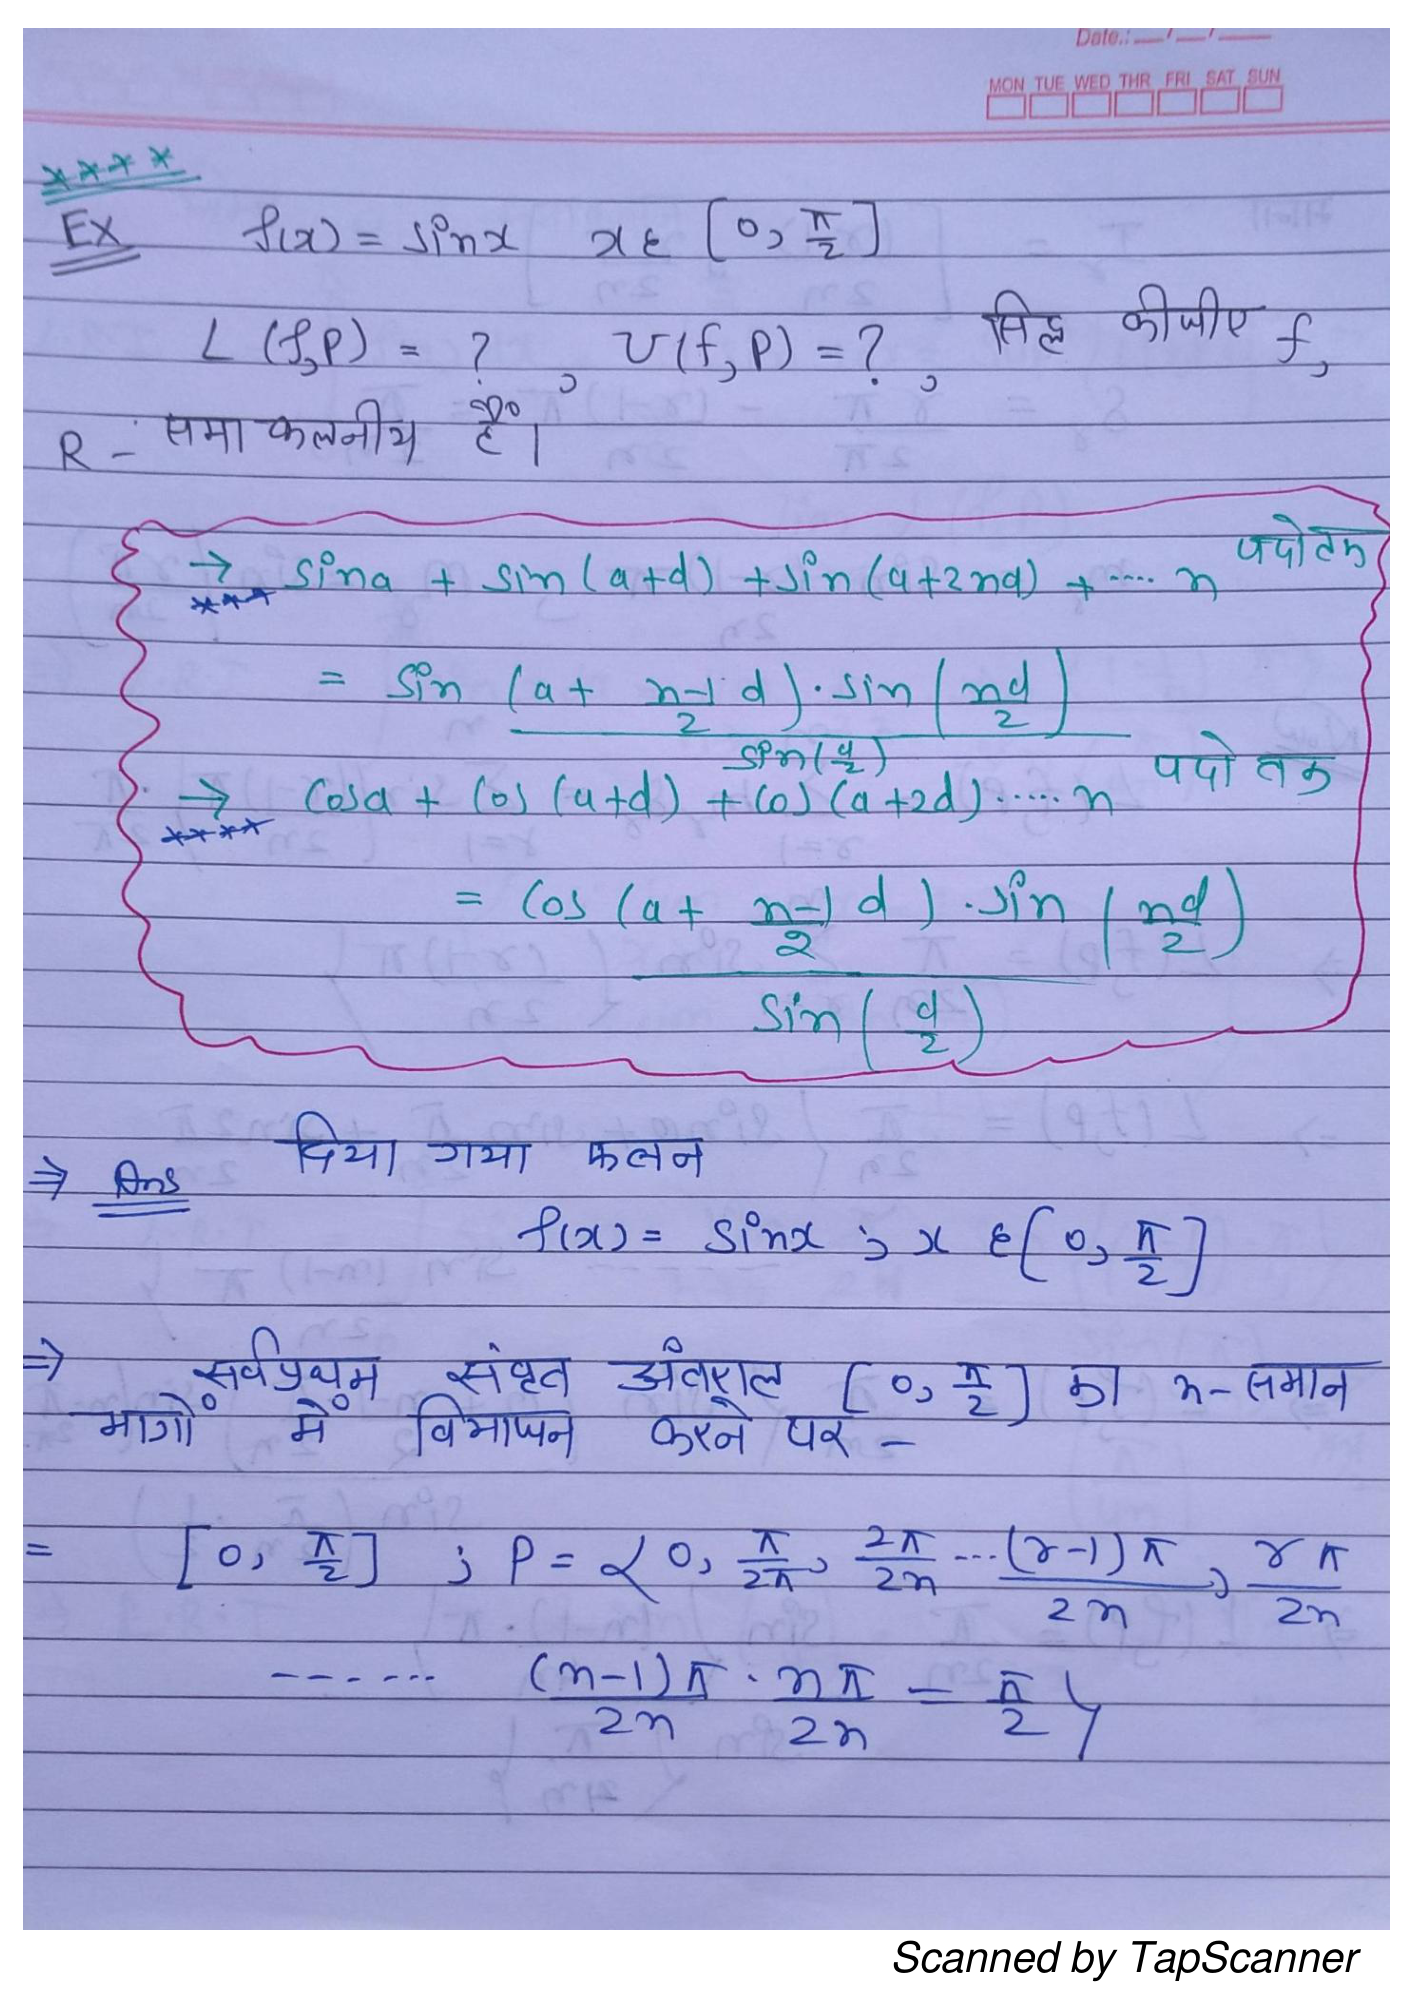 Date.: __/__/__
MON TUE WED THR FRI SAT SUN
****
Ex f(x) = sinx x ε [0, π/2]
L (f,p) = ? , U(f, p) = ? , सिद्ध कीजीए f,
R - समाकलनीय हैं।
→ sina + sin(a+d) + sin(a+2nd) + .... n पदो तक
***
= sin (a + n-1/2 d) . sin (nd/2) / sin(d/2)
→ cosa + cos (a+d) + cos (a+2d) ..... n पदो तक
****
= cos (a + n-1/2 d) . sin (nd/2)
sin (d/2)
⇒ Ans दिया गया फलन
f(x) = sinx ; x ε [0, π/2]
⇒ सर्वप्रथम संवृत अंतराल [0, π/2] का n-समान
भागों में विभाजन करने पर -
= [0, π/2] ; P = { 0, π/2π, 2π/2n ... (r-1)π/2n, rπ/2n
------ (n-1)π/2n . nπ/2n = π/2 }
Scanned by TapScanner